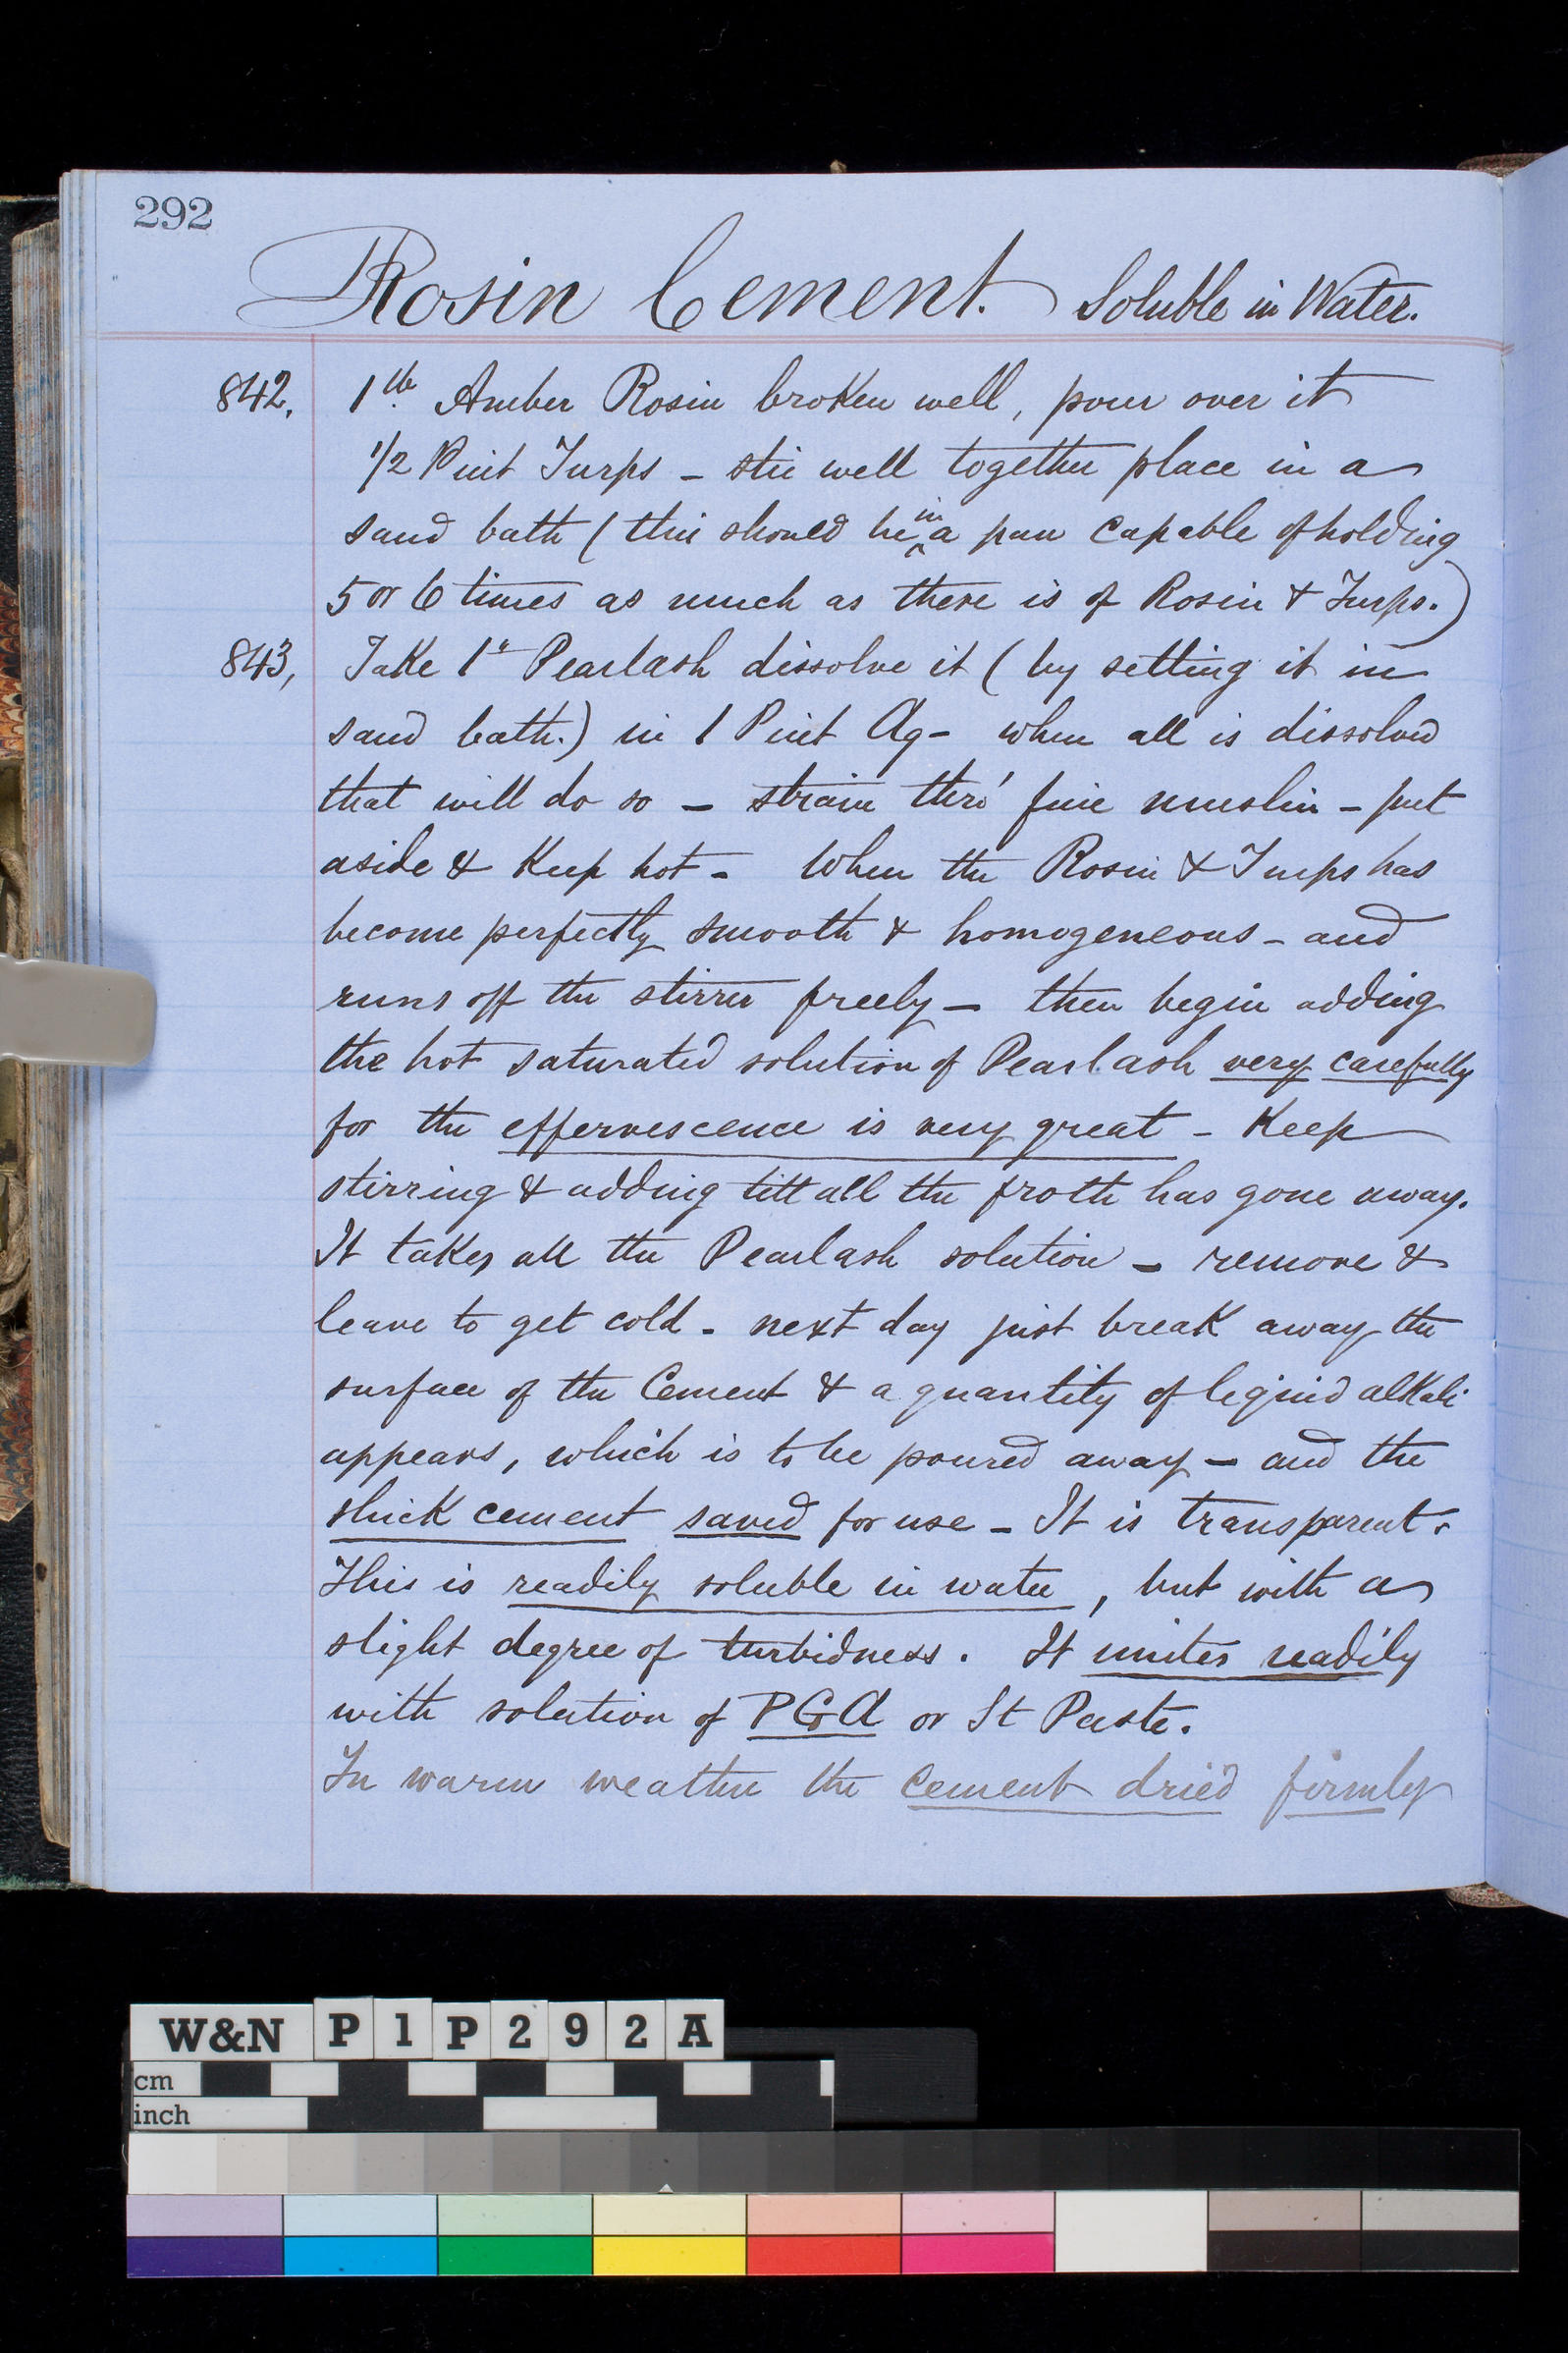 292
Rosin Cement. Soluble in Water.
842, 1 lb. Amber Rosin broken well, pour over it
1/2 Pint Turps - stir well together place in a
sand bath (this should be in a pan capable of holding
5 or 6 times as much as there is of Rosin & Turps.)
843, Take 1" Pearlash dissolve it (by setting it in
sand bath.) in 1 Pint Aq- when all is dissolved
that will do so - strain thro' fine muslin - put
aside & Keep hot - When the Rosin & Turps has
become perfectly smooth & homogeneous - and
runs off the stirrer freely - then begin adding
the hot saturated solution of Pearlash very carefully
for the effervescence is very great - Keep
stirring & adding till all the froth has gone away.
It takes all the Pearlash solution - remove &
leave to get cold - next day just break away the
surface of the Cement & a quantity of liquid alkali
appears, which is to be poured away - and the
thick cement saved for use - It is transparent.
This is readily soluble in water, but with a
slight degree of turbidness. It unites readily
with solution of PGA or St Paste.
In warm weather the cement dried firmly
W&N P1P292A
cm
inch